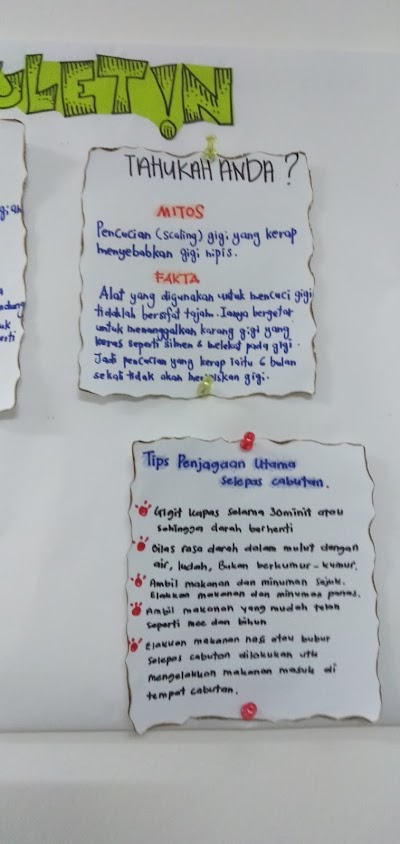 ULETIN
TAHUKAH ANDA?
MITOS
Pencucian (scaling) gigi yang kerap
menyebabkan gigi nipis.
FAKTA
Alat yang digunakan untuk mencuci gigi
tidaklah bersifat tajam. Ianya bergetar
untuk menanggalkan karang gigi yang
keras seperti simen & melekat pada gigi.
Jadi pencucian yang kerap iaitu 6 bulan
sekali tidak akan gigi.
Tips Penjagaan Utama
selepas cabutan.
Gigit kapas selama 30minit atau
sehingga darah berhenti
Bilas rasa darah dalam mulut dengan
air, ludah, Bukan berkumur-kumur.
Ambil makanan dan minuman sejuk.
Elakkan makanan dan minuman panas.
Ambil makanan yang mudah telan
seperti mee dan bihun
Elakkan makanan nasi atau bubur
selepas cabutan dilakukan utk
mengelakkan makanan masuk di
tempat cabutan.